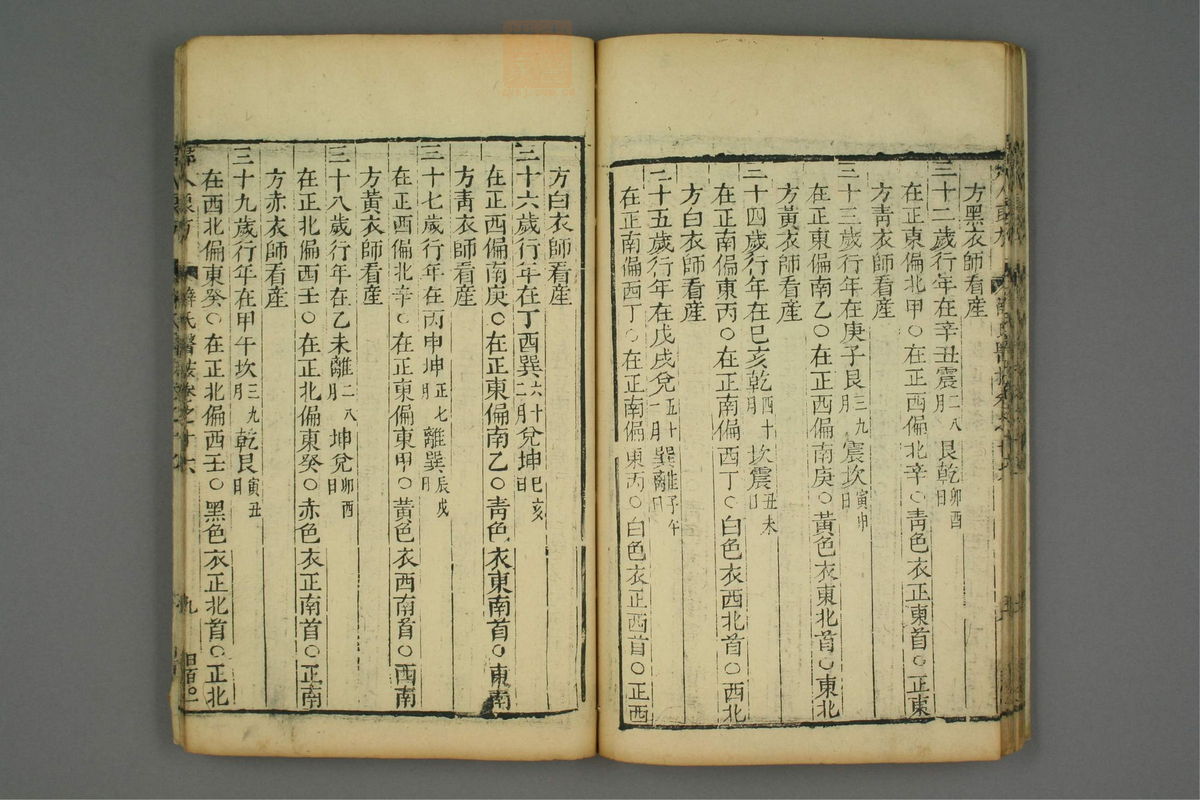 方墨衣師看産
三十二歲行年在辛丑震二八月艮乾卯酉日
在正東偏北甲○在正西偏北辛○靑色衣正東首○正東
方靑衣師看産
三十三歲行年在庚子艮三九月震坎寅申日
在正東偏南乙○在正西偏南庚○黃色衣東北首○東北
方黃衣師看産
三十四歲行年在巳亥乾四十月坎震丑未日
在正南偏東丙○在正南偏西丁○白色衣西北首○西北
方白衣師看産
三十五歲行年在戊戌兌五十一月巽離子午日
在正南偏西丁○在正南偏東丙○白色衣正西首○正西
方白衣師看産
三十六歲行年在丁酉巽六十二月兌坤巳亥日
在正西偏南庚○在正東偏南乙○靑色衣東南首○東南
方靑衣師看産
三十七歲行年在丙申坤正七月離巽辰戌日
在正西偏北辛○在正東偏東甲○黃色衣西南首○西南
方黃衣師看産
三十八歲行年在乙未離二八月坤兌卯酉日
在正北偏西壬○在正北偏東癸○赤色衣正南首○正南
方赤衣師看産
三十九歲行年在甲午坎三九月乾艮寅丑日
在西北偏東癸○在正北偏西壬○黑色衣正北首○正北
薛氏醫按卷之十六
九